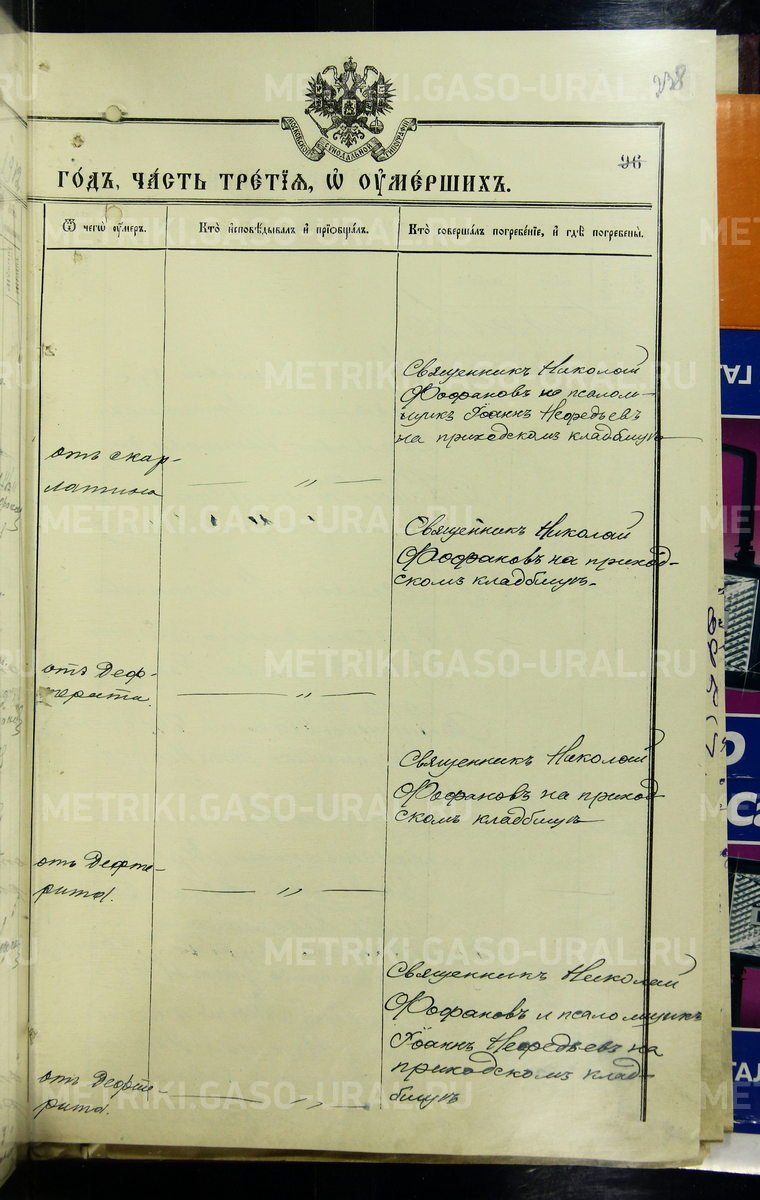 238
МОСКОВСКОЙ СѴНОДАЛЬНОЙ ТИПОГРАФІИ
96
ГО́ДЪ, ЧА́СТЬ ТРЕ́ТІѦ, Ѡ҆ ОУ҆МЕ́РШИХЪ.
Ѿ чегѡ̀ оу҆́меръ.
Кто̀ и҆сповѣ́дывалъ и҆ прїѡбща́лъ.
Кто̀ соверша́лъ погребе́нїе, и҆ гдѣ̀ погребены̀.
Священникъ Николай
Фофановъ и псалом-
щикъ Іоаннъ Нефедьевъ
на приходскомъ кладбищѣ
отъ скар-
латина
— „ —
Священникъ Николай
Фофановъ на приход-
скомъ кладбищѣ.
отъ Деф-
терита.
— „ —
Священникъ Николай
Фофановъ на приход
скомъ кладбищѣ
отъ Дефте-
рита.
— „ —
Священникъ Николай
Фофановъ и псаломщикъ
Іоаннъ Нефедьевъ на
приходскомъ клад-
бищѣ
отъ Дефте-
рита.
— „ —
METRIKI.GASO-URAL.RU